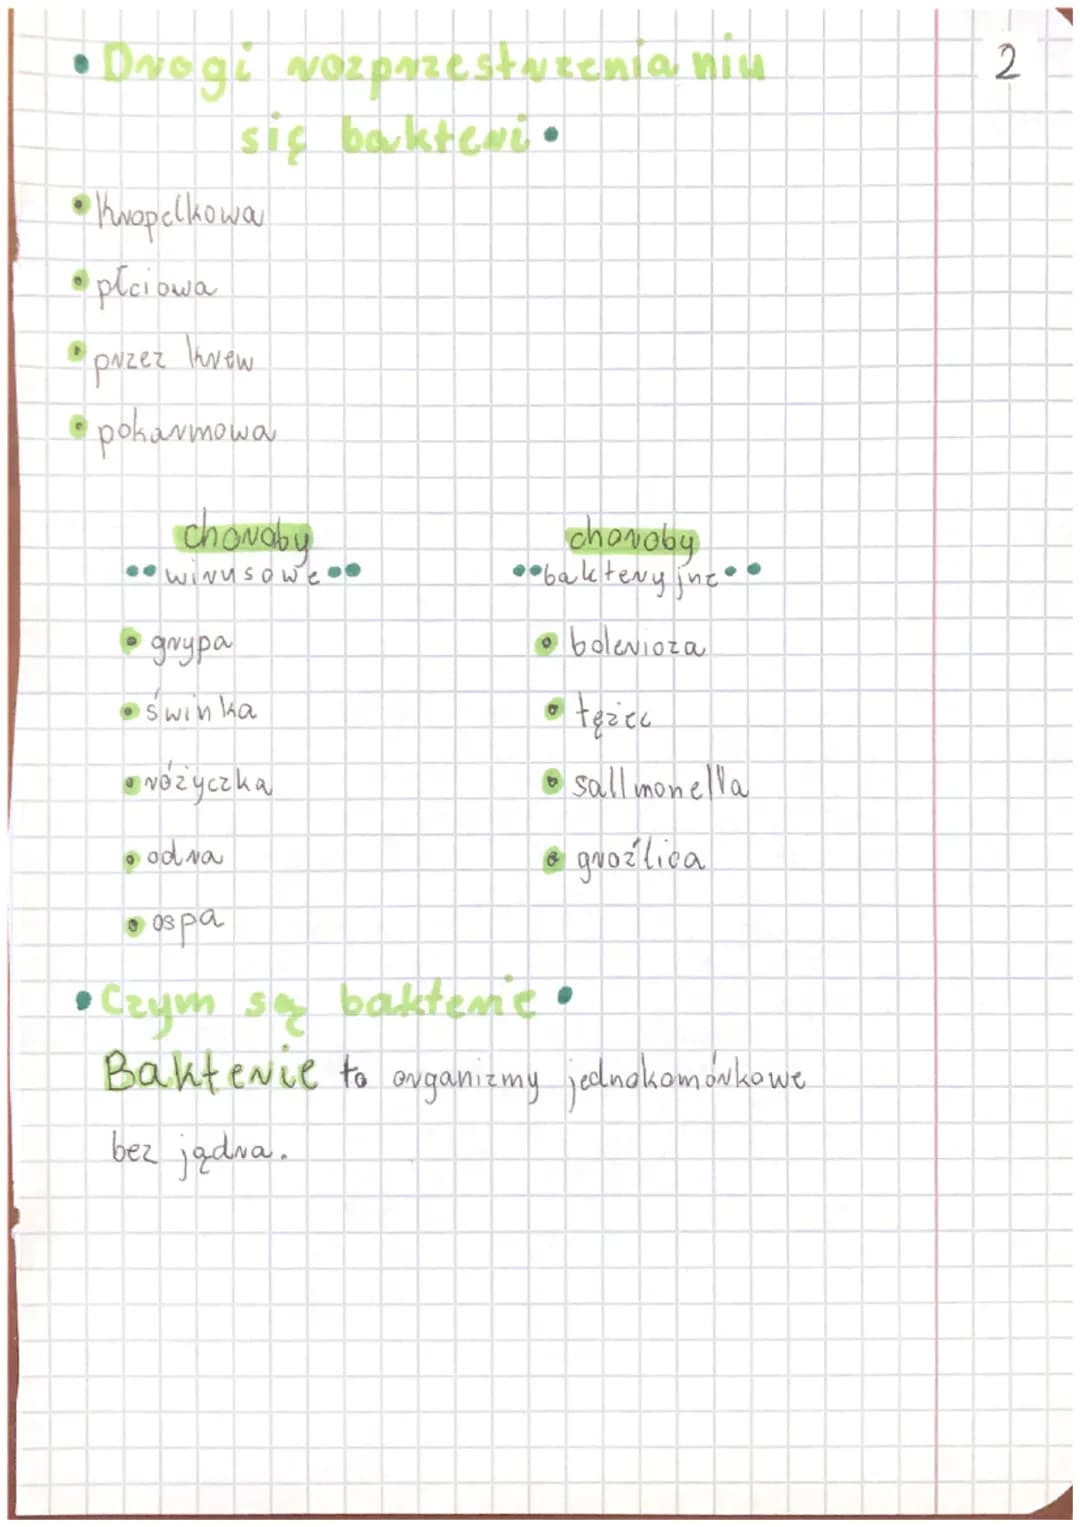 2
• Drogi rozprzestrzenianiu
się bakteri •
• Kropelkowa
• płciowa
• przez krew
• pokarmowa
choroby
•• wirusowe ••
• grypa
• świnka
• różyczka
• odra
• ospa
choroby
•• bakteryjne ••
• bolerioza
• tężec
• sallmonella
• gruźlica
• Czym są bakterie •
Bakterie to organizmy jednokomórkowe
bez jądra.